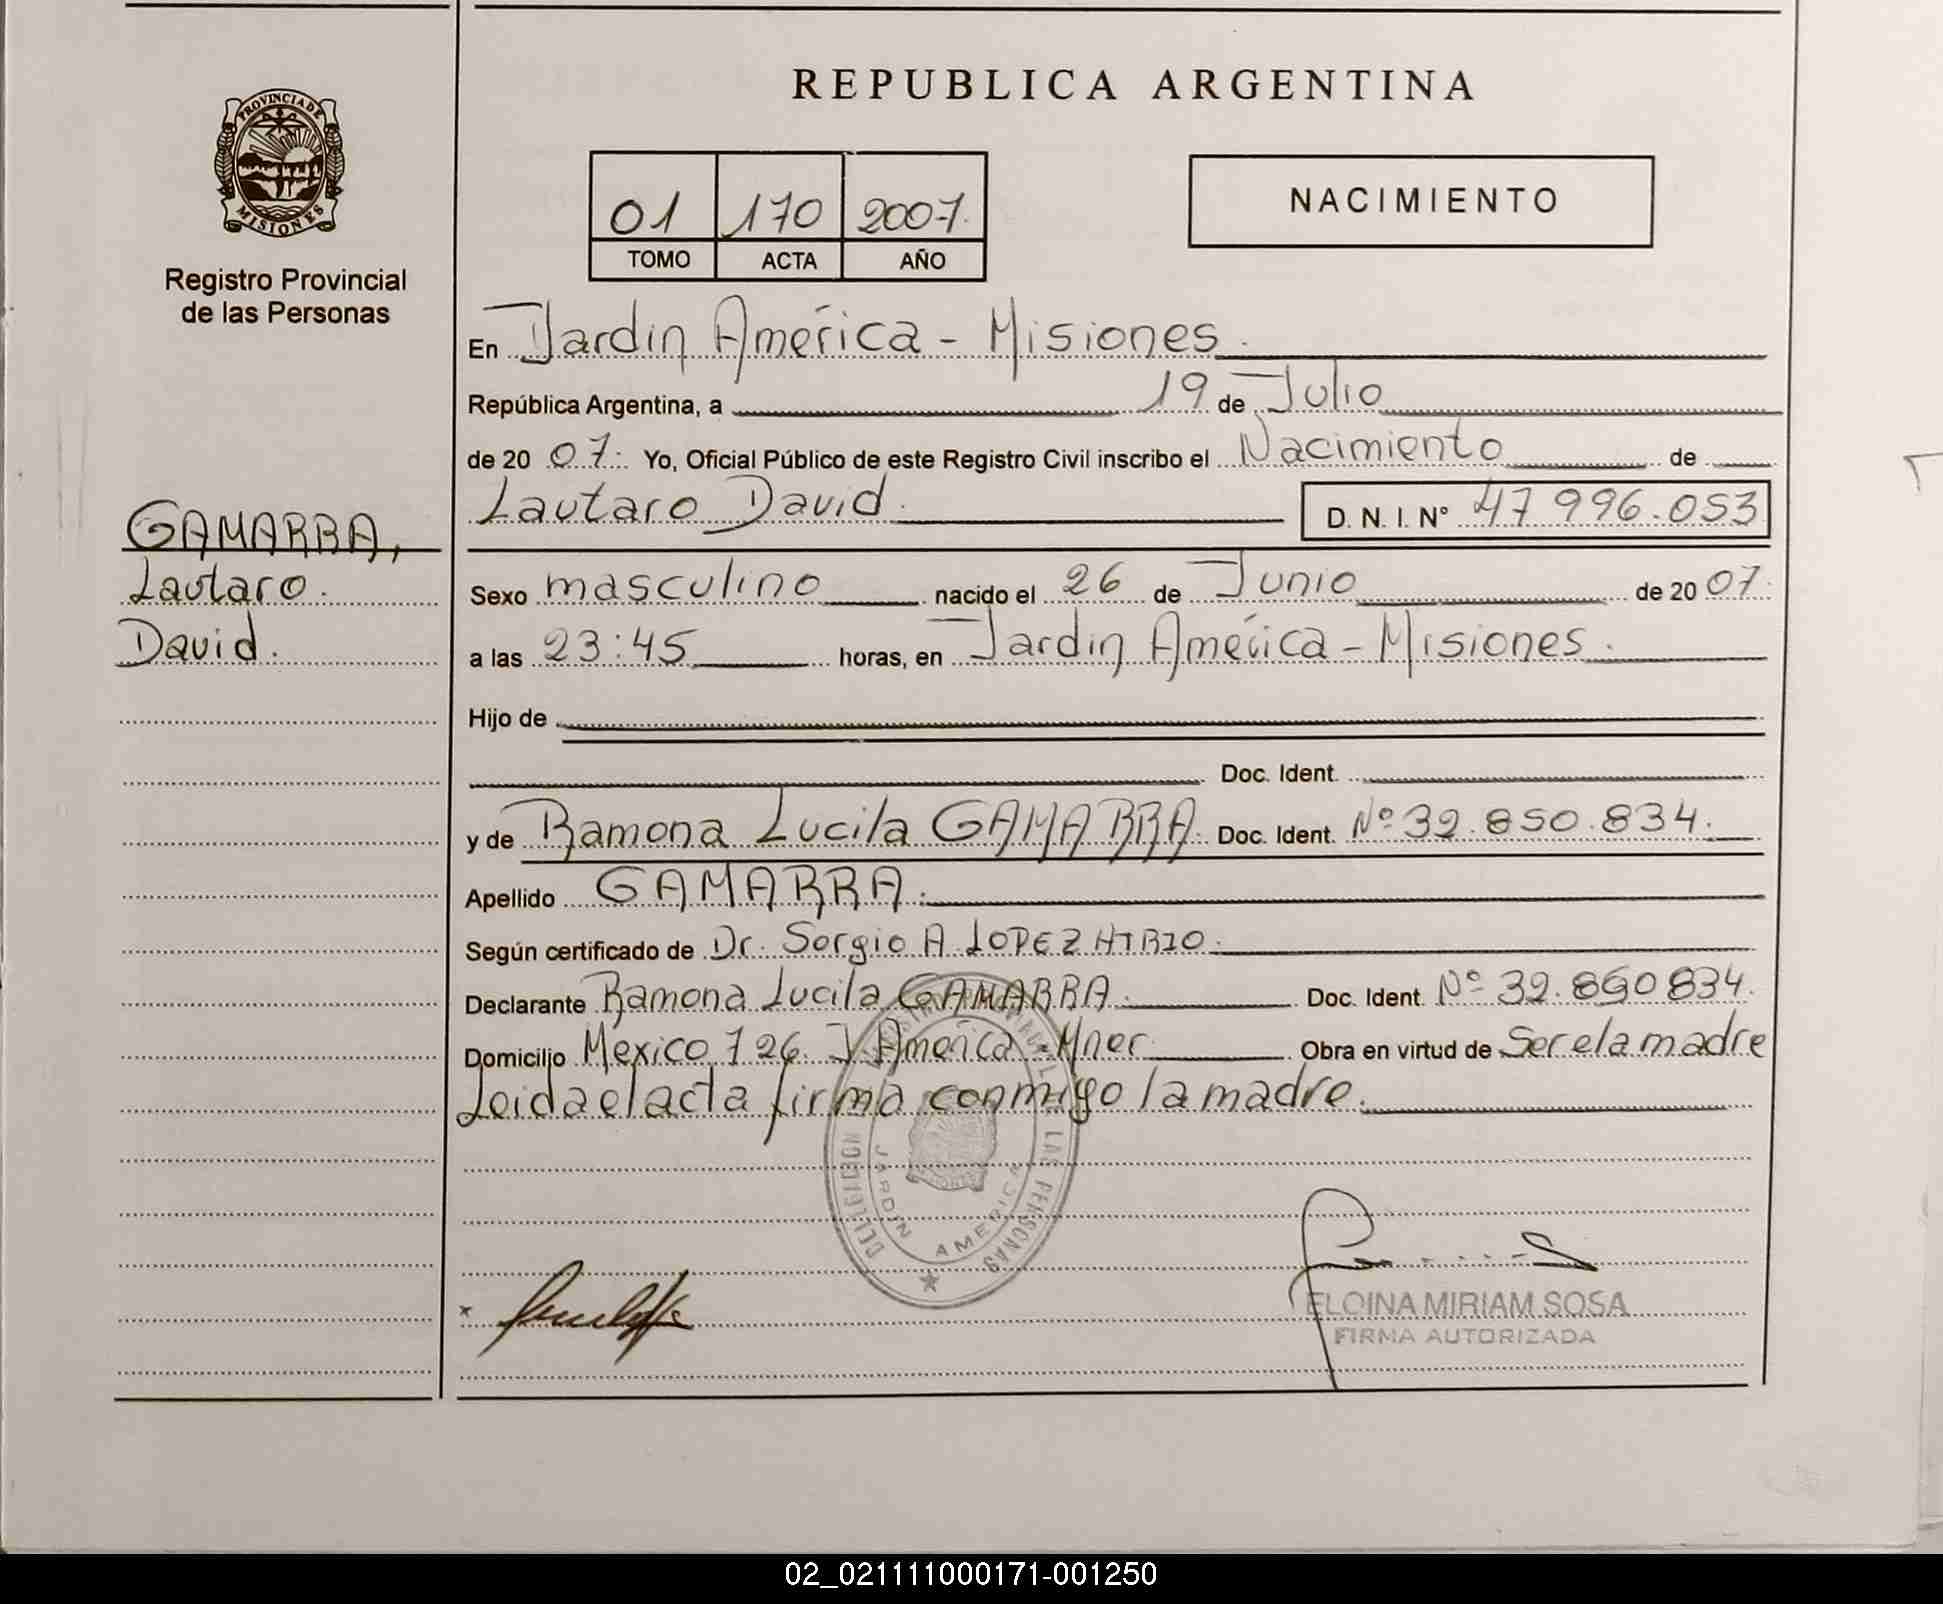 REPUBLICA ARGENTINA
PROVINCIA DE MISIONES
Registro Provincial
de las Personas
01 170 2007
TOMO ACTA AÑO
NACIMIENTO
GAMARRA,
Lautaro
David.
En Jardin América - Misiones.
República Argentina, a 19 de Julio
de 20 07. Yo, Oficial Público de este Registro Civil inscribo el Nacimiento de
Lautaro David. D. N. I. Nº 47 996.053
Sexo masculino nacido el 26 de Junio de 20 07.
a las 23:45 horas, en Jardin América - Misiones.
Hijo de
Doc. Ident.
y de Ramona Lucila GAMARRA. Doc. Ident. Nº 32.850.834.
Apellido GAMARRA.
Según certificado de Dr. Sergio A. LOPEZ
Declarante Ramona Lucila GAMARRA. Doc. Ident. Nº 32.850 834.
Domicilio Mexico 726 J. América - Mnes. Obra en virtud de Ser ela madre
Leida el acta firma conmigo la madre.
DELEGACION LAS PERSONAS
JARDIN AMERICA
ELOINA MIRIAM SOSA
FIRMA AUTORIZADA
02_021111000171-001250